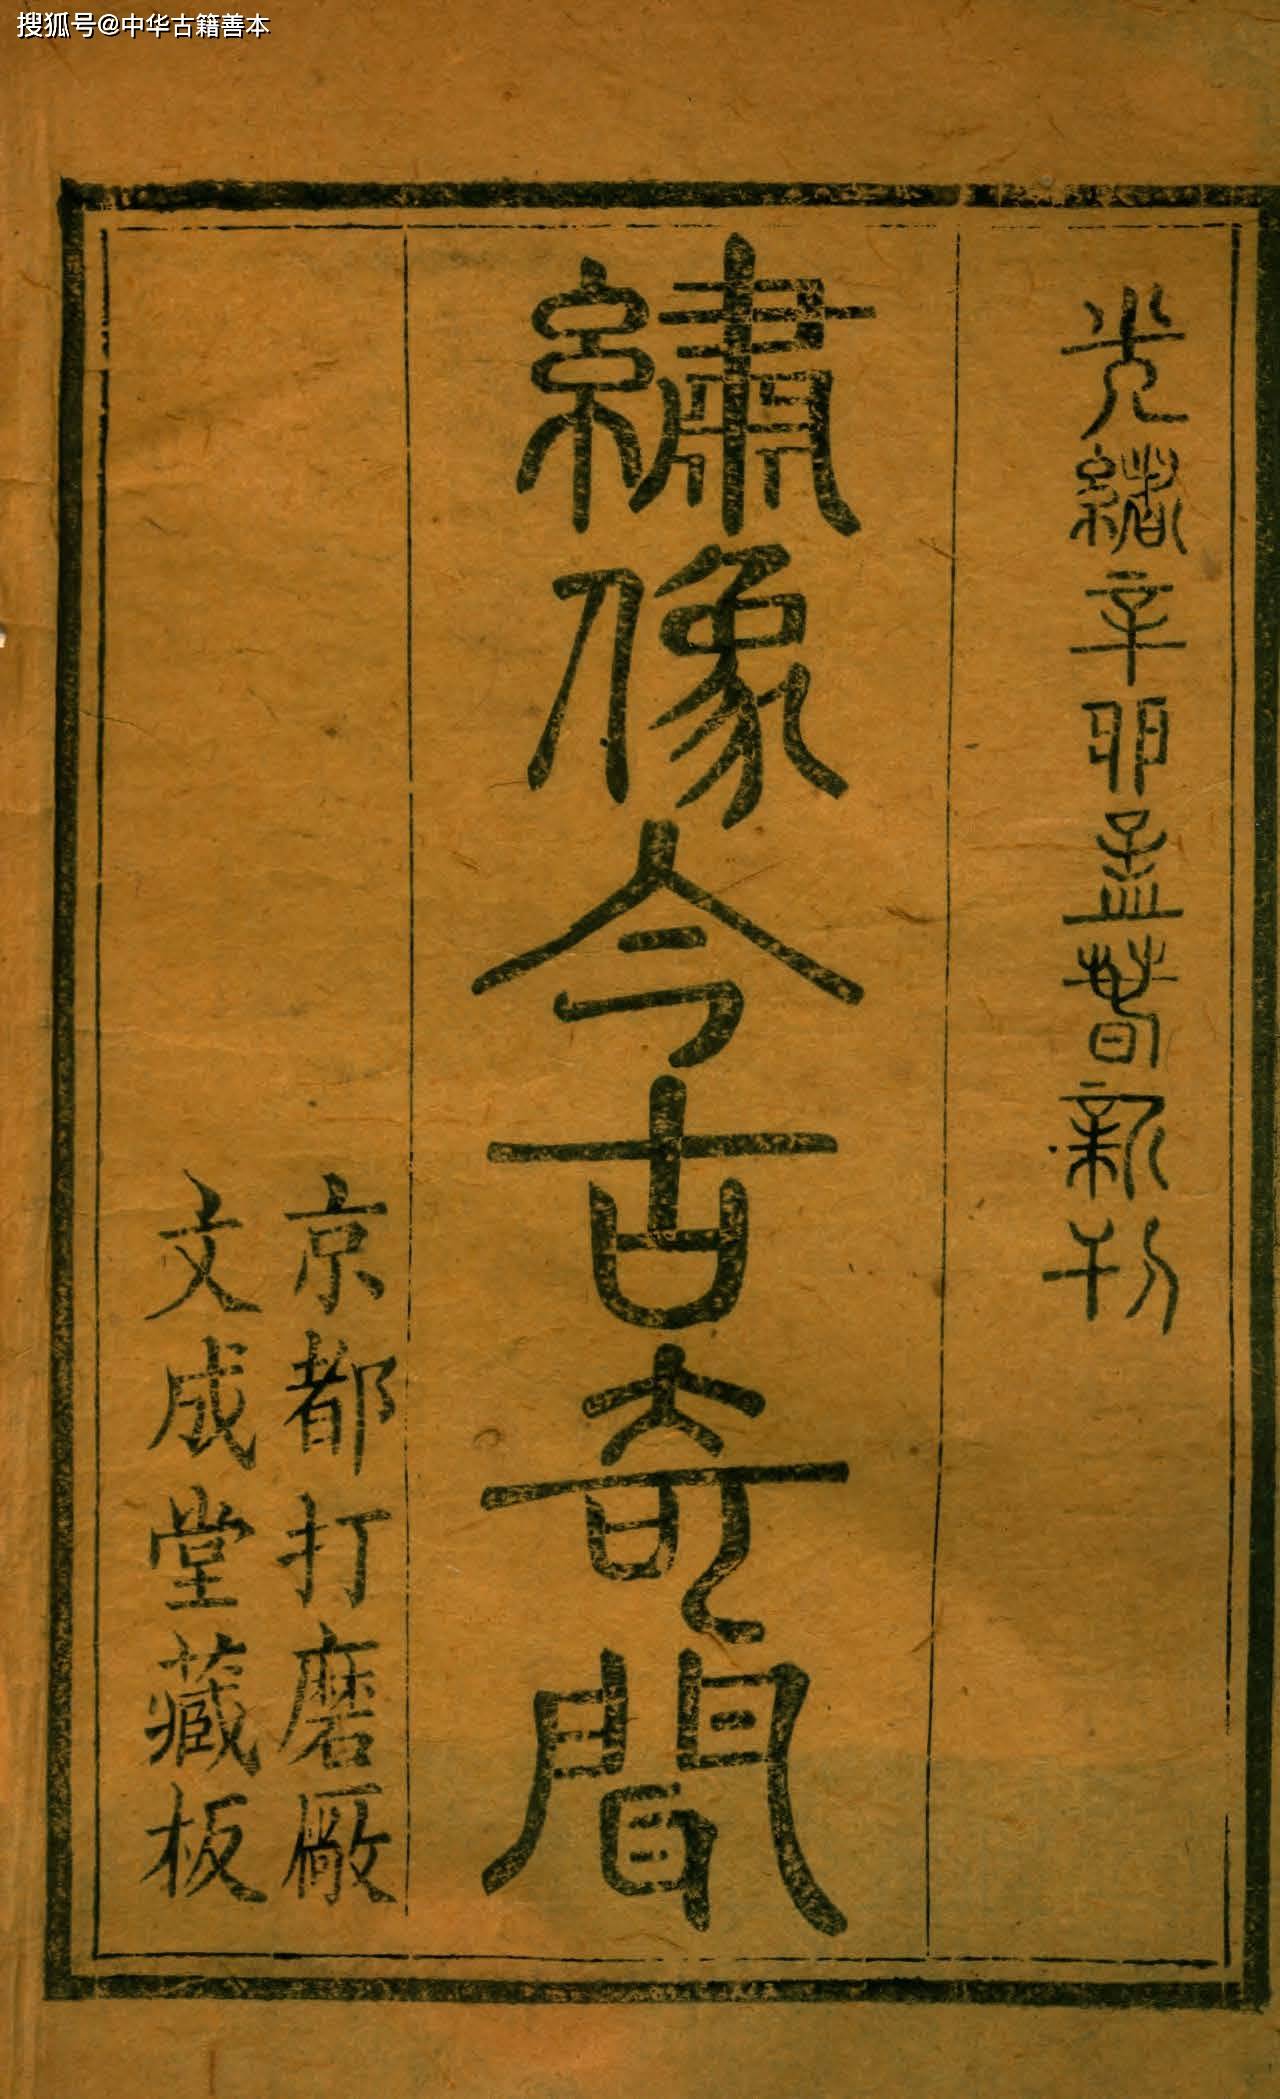 搜狐号@中华古籍善本
光緒辛卯孟春新刊
繡像今古奇聞
京都打磨廠
文成堂藏板